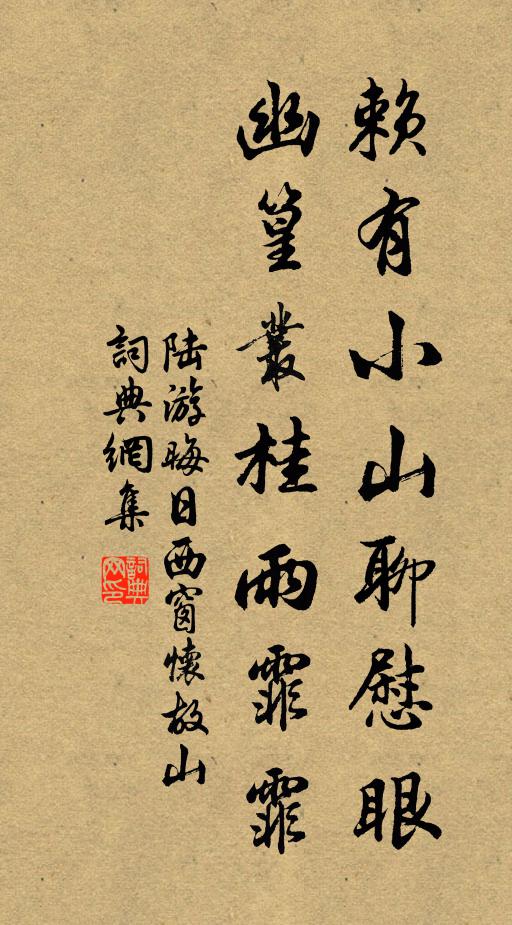 賴有小山聊慰眼
幽篁叢桂雨霏霏
陸游晦日西窗懷故山
詞典網集
詞典網印